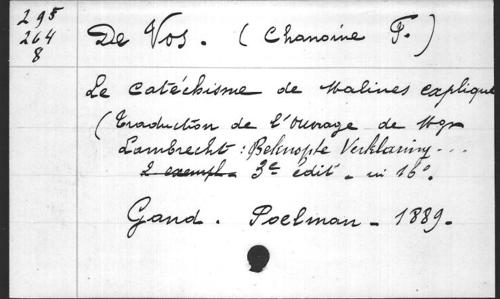 295
264
8
De Vos. (Chanoine F.)
Le catéchisme de Malines expliqué
(Traduction de l'ouvrage de Mgr
Lambrecht : Beknopte Verklaring...
2 exempl. 3e édit. in 16°.
Gand. Poelman - 1889.